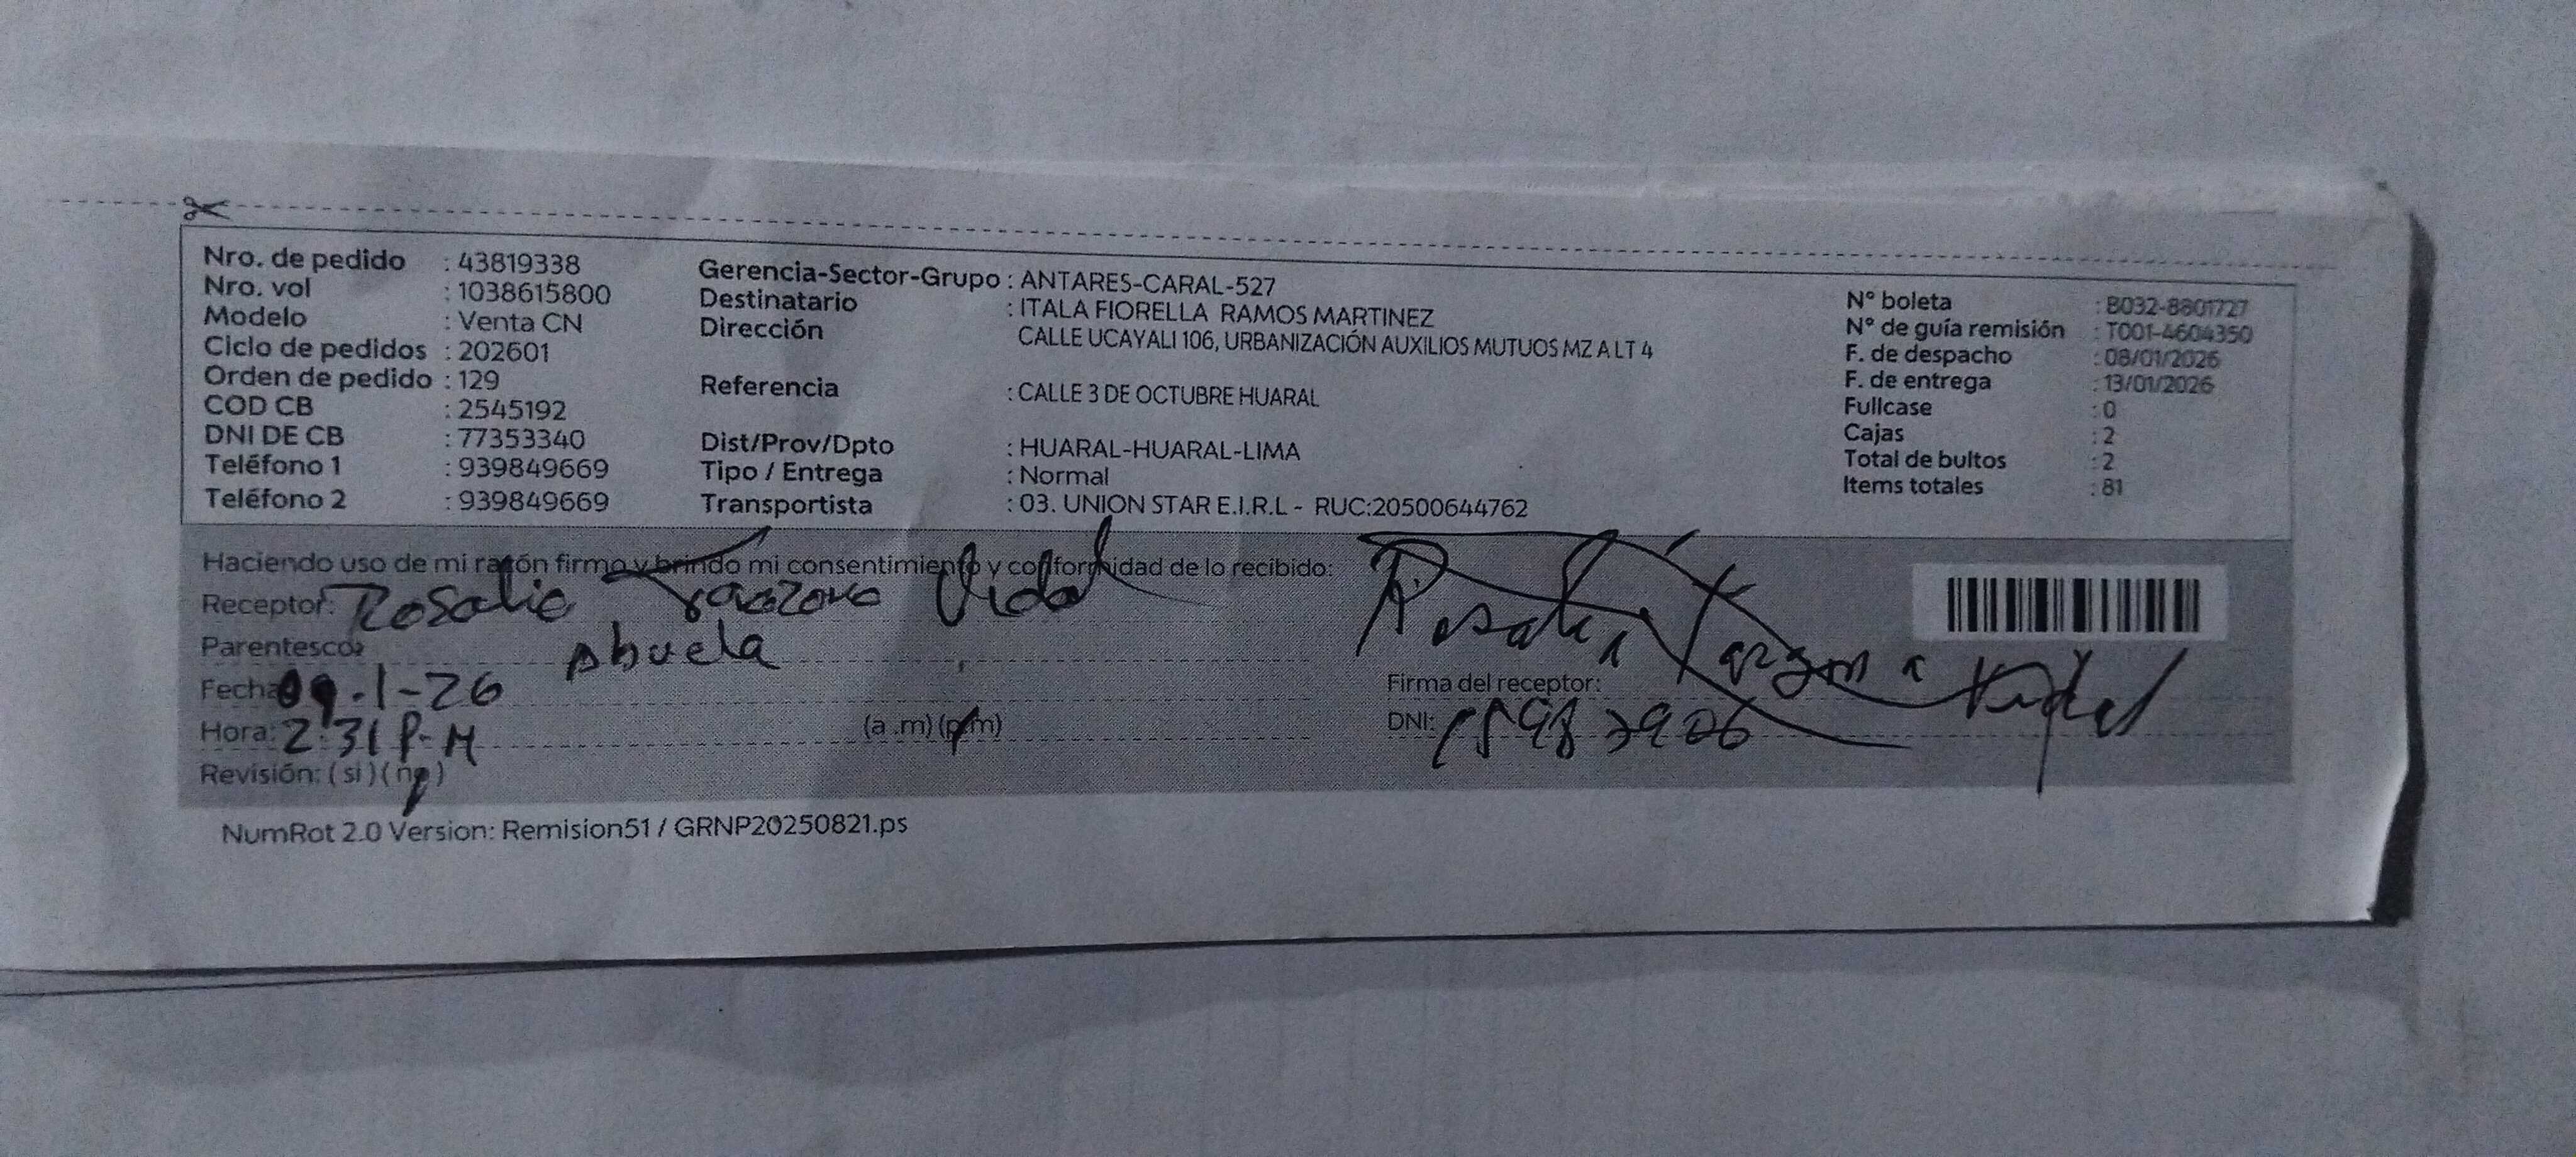 Nro. de pedido : 43819338
Nro. vol : 1038615800
Modelo : Venta CN
Ciclo de pedidos : 202601
Orden de pedido : 129
COD CB : 2545192
DNI DE CB : 77353340
Teléfono 1 : 939849669
Teléfono 2 : 939849669
Gerencia-Sector-Grupo : ANTARES-CARAL-527
Destinatario : ITALA FIORELLA RAMOS MARTINEZ
Dirección CALLE UCAYALI 106, URBANIZACIÓN AUXILIOS MUTUOS MZ A LT 4
Referencia : CALLE 3 DE OCTUBRE HUARAL
Dist/Prov/Dpto : HUARAL-HUARAL-LIMA
Tipo / Entrega : Normal
Transportista : 03. UNION STAR E.I.R.L - RUC:20500644762
N° boleta : B032-8801727
N° de guía remisión : T001-4604350
F. de despacho : 08/01/2026
F. de entrega : 13/01/2026
Fullcase : 0
Cajas : 2
Total de bultos : 2
Items totales : 81
Haciendo uso de mi razón firmo y brindo mi consentimiento y conformidad de lo recibido:
Receptor: Rosalia Vidal
Parentesco: Abuela
Fecha: 09-1-26
Hora: 2:31 P-M (a .m) (p.m)
Revisión: (si) (no)
Rosalia Vidal
Firma del receptor:
DNI:
NumRot 2.0 Version: Remision51 / GRNP20250821.ps